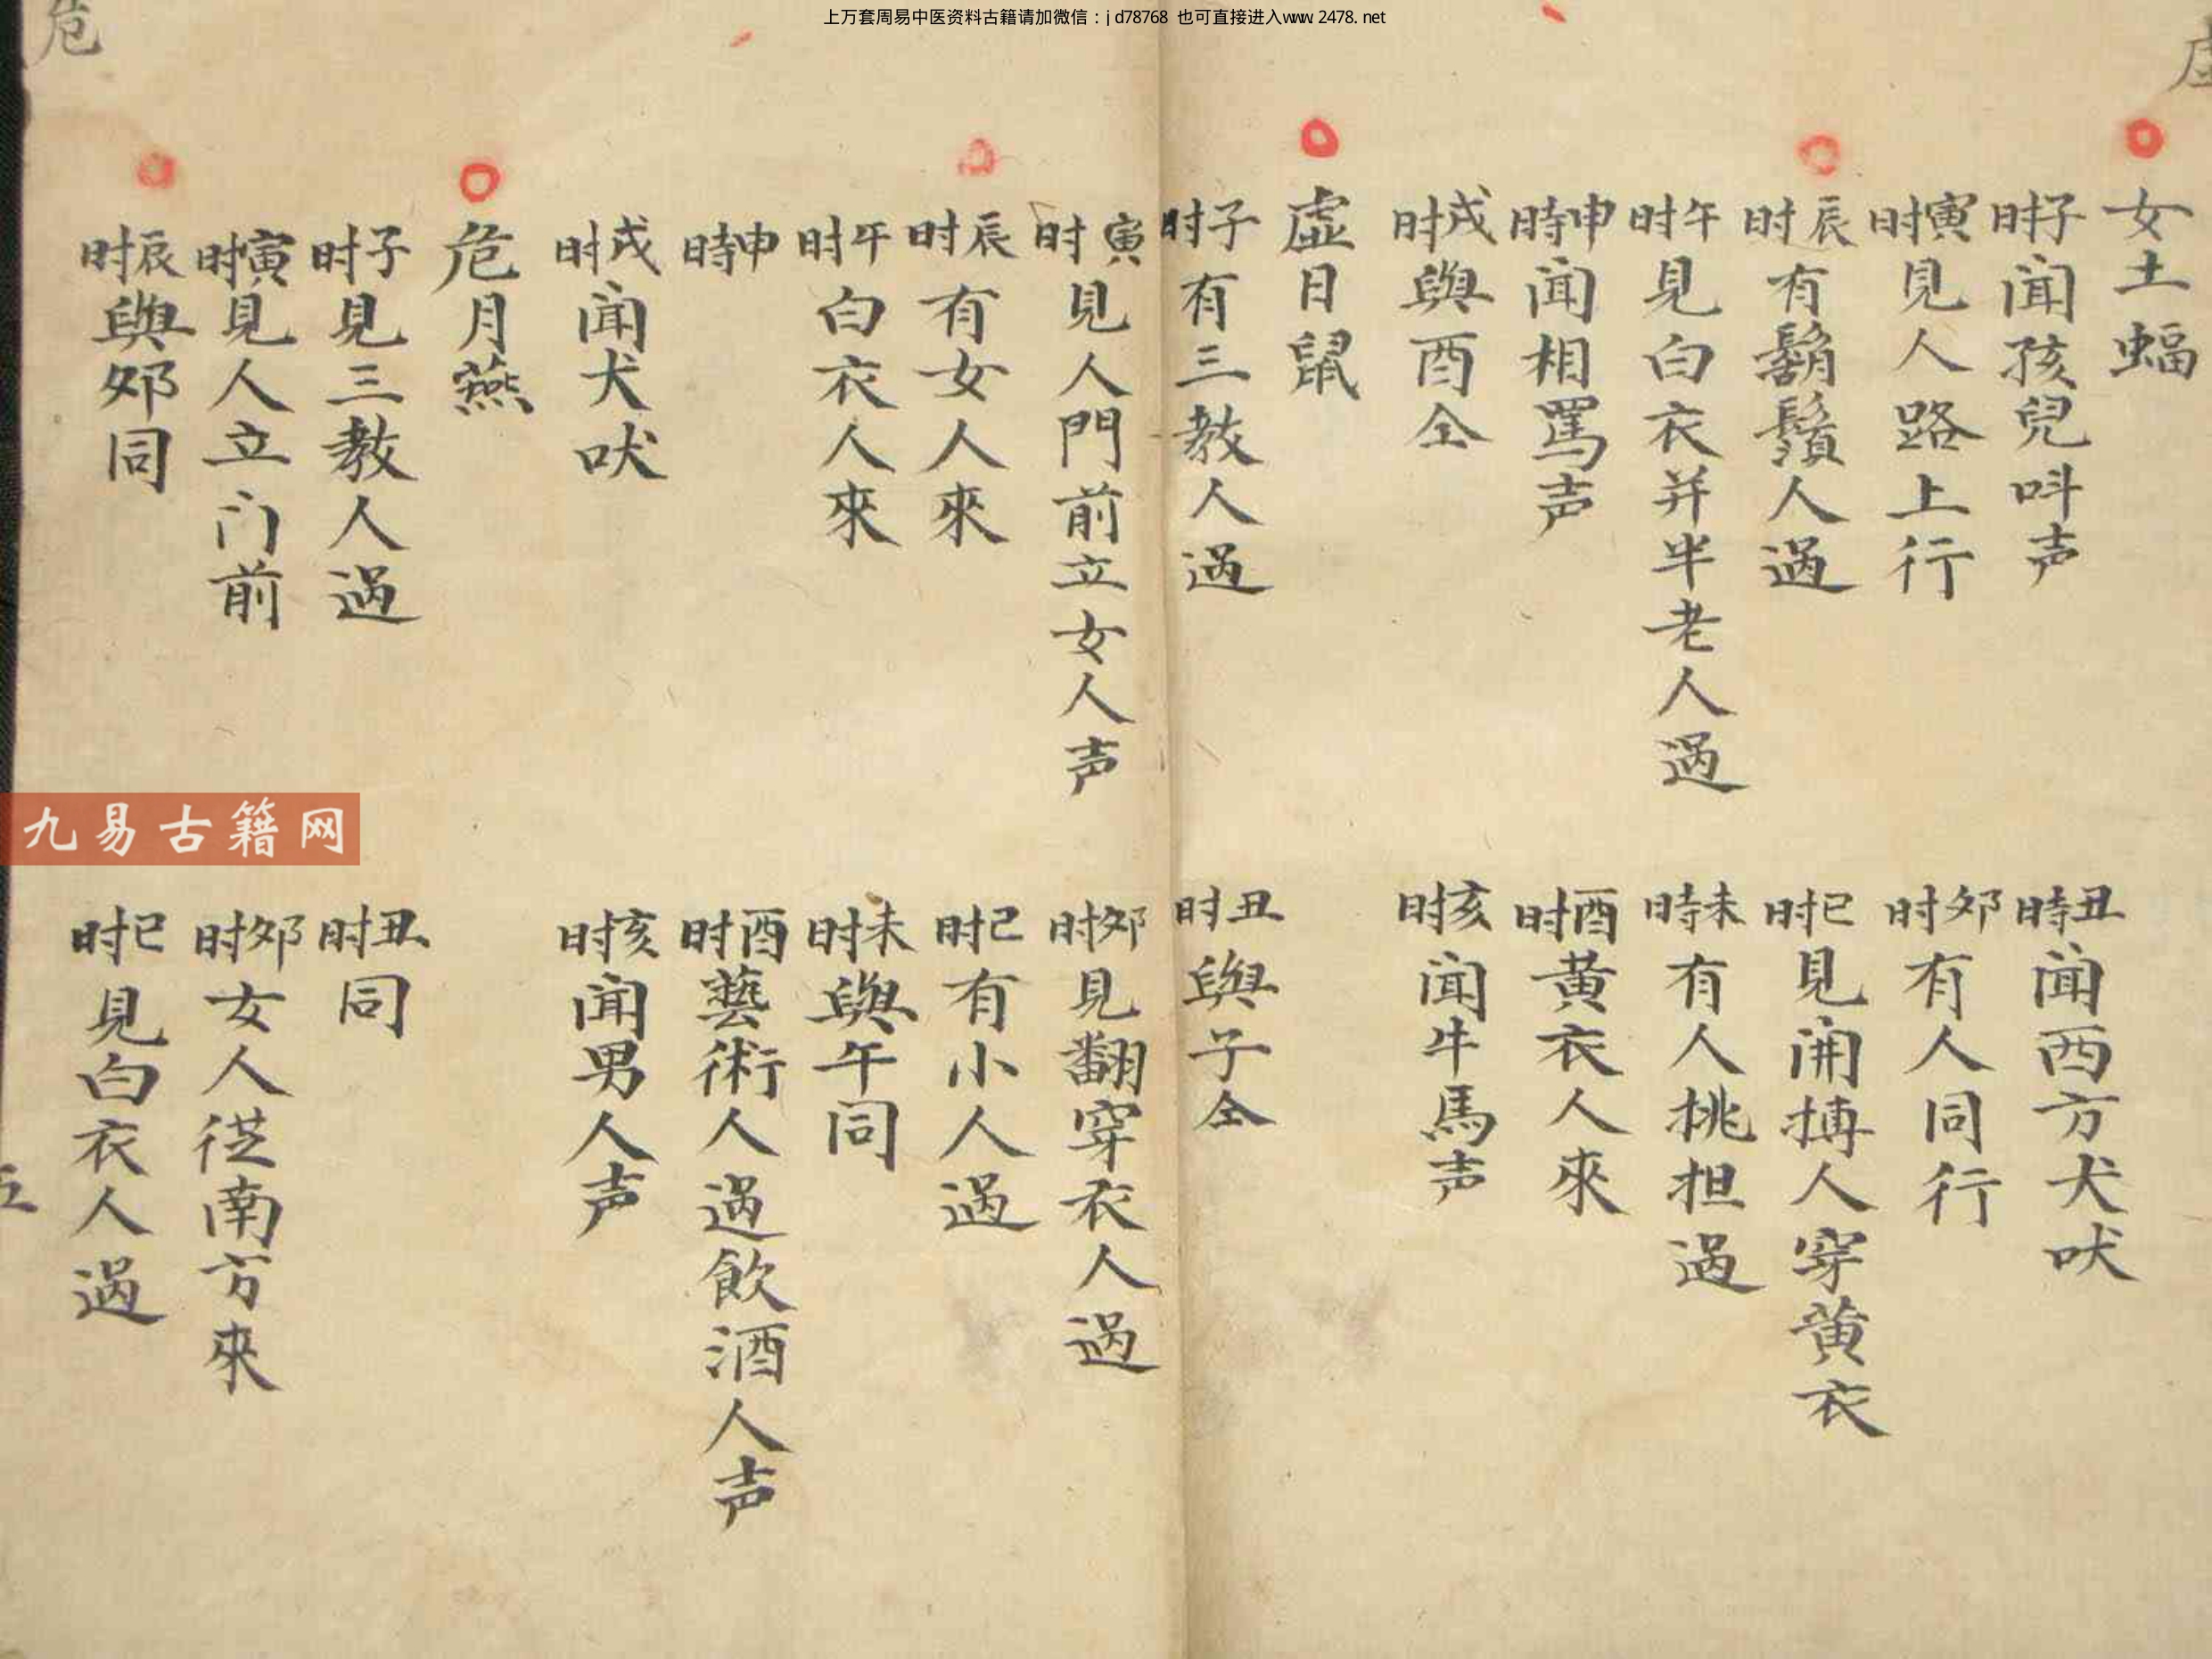 上万套周易中医资料古籍请加微信：jd78768 也可直接进入www.2478.net
女土蝠
子时闻孩兒呌声
丑時闻西方犬吠
寅时見人路上行
夘时有人同行
辰时有鬍鬚人過
巳时見闹搏人穿黄衣
午时見白衣并半老人過
未時有人挑担過
申時闻相罵声
酉时黄衣人來
戌时與酉仝
亥时闻牛馬声
虛日鼠
子时有三教人過
丑时與子仝
寅时見人門前立女人声
夘时見翻穿衣人過
辰时有女人來
巳时有小人過
午时白衣人來
未时與午同
申時
酉时藝術人過飲酒人声
戌时闻犬吠
亥时闻男人声
危月燕
子时見三教人過
丑时同
寅时見人立门前
夘时女人從南方來
辰时與夘同
巳时見白衣人過
危
九易古籍网